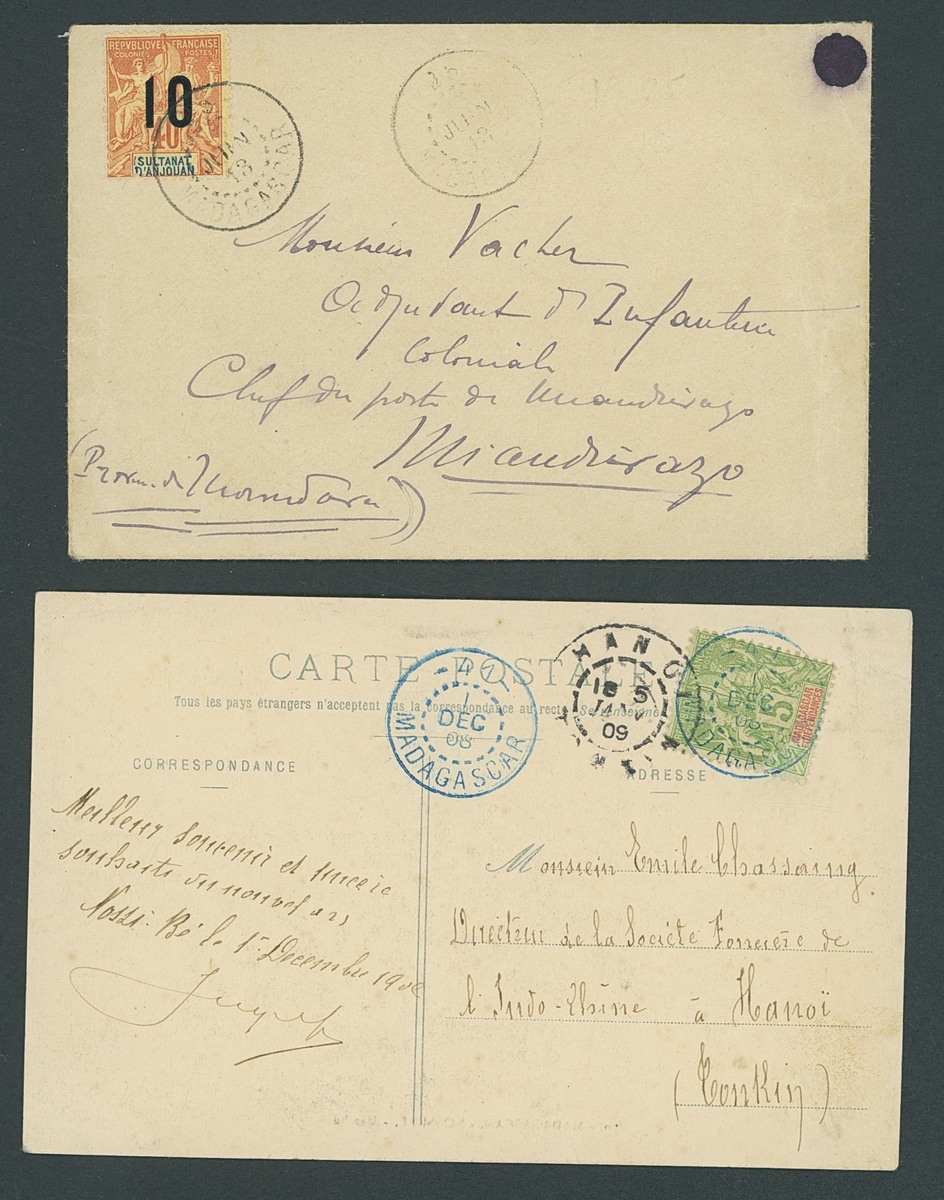 REPVBLIQUE FRANÇAISE
COLONIES POSTES
10
40
SULTANAT
D'ANJOUAN
JANV
13
MADAGASCAR
JANV
13
Monsieur Vacher
adjudant d'Infanterie
Coloniale
Chef du poste de Miandrivazo
Miandrivazo
(Provin. de Morondava)
CARTE POSTALE
Tous les pays étrangers n'acceptent pas la correspondance au recto (Se renseigner
CORRESPONDANCE
ADRESSE
-41-
1
DEC
08
MADAGASCAR
HANOI
18 5
JANV
09
TONKIN
5
MADAGASCAR
ET DÉPENDANCES
-41-
DEC
08
MADAGASCAR
Meilleur souvenir et sincere
souhaits du nouvel an
Nossi-Bé le 1er Decembre 1908
Monsieur Emile Chassaing
Directeur de la Société Foncière de
l'Indo-Chine à Hanoï
(Tonkin)